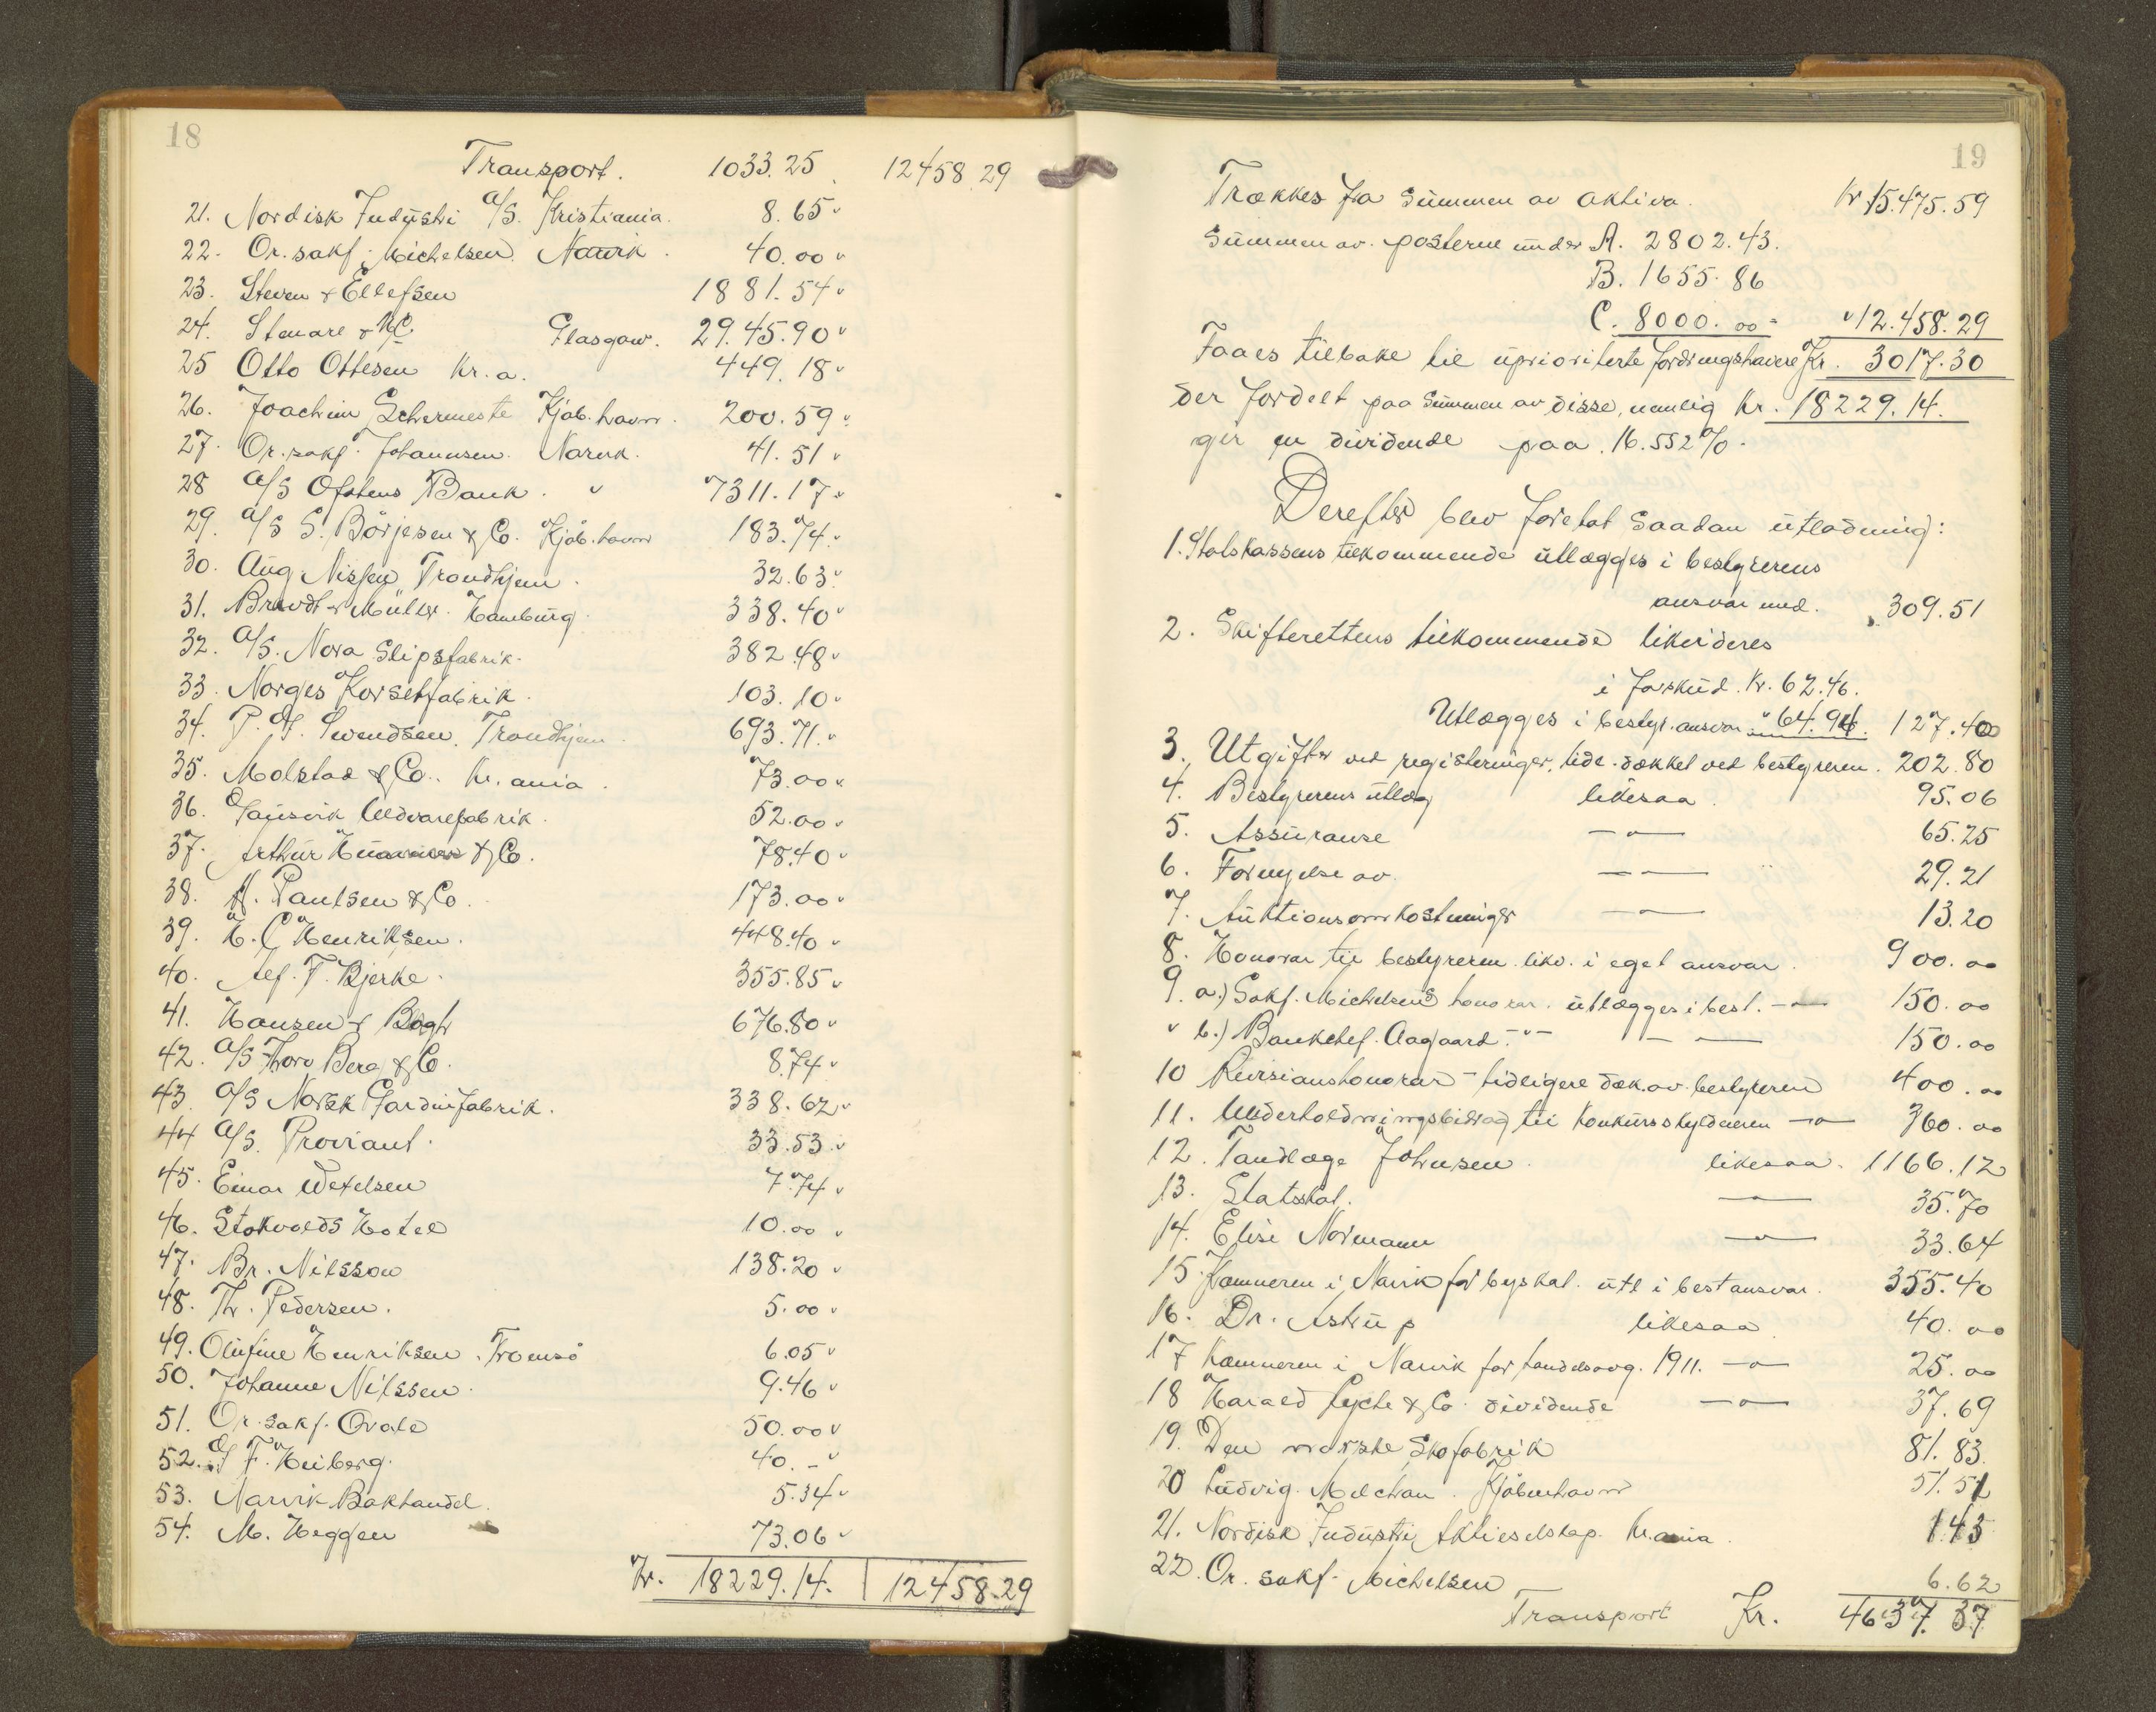 18
Transport. 1033.25 12458.29
21. Nordisk Industri A/S. Kristiania. 8.65
22. Or. sakf. Michelsen. Narvik. 40.00
23. Steen & Ellefsen 1881.54
24. & Co. Glasgow. 29.45.90
25 Otto Ottesen Kr.a. 449.18
26. Joachim Kjøb.havn. 200.59
27. Or. sakf. Johannsen. Narvik. 41.51
28 A/S Ofotens Bank. " 7311.17
29. A/S S. Börjesen & Co. Kjøb.havn 183.74
30. Aug. Nissen, Trondhjem. 32.63
31. & Müller. Hamburg. 338.40
32. A/S. Nora Slipsfabrik. 382.48
33. Norges Korsetfabrik. 103.10
34. P. A. Svendsen. Trondhjem. 693.71
35. Molstad & Co. Kr.ania. 73.00
36. Uldvarefabrik. 52.00
37. Arthur & Co. 78.40
38. Paulsen & Co. 173.00
39. H. C. Henriksen. 448.40
40. Alf. F. Bjerke. 355.85
41. Hansen & Bøgh 676.80
42. A/S Thorv Berg & Co. 8.74
43. A/S Norsk Gardinfabrik. 338.62
44 A/S. Proviant. 33.53
45. Einar Wexelsen 7.74
46. Stokvolds Hotel 10.00
47. Br. Nilsson 138.20
48. Th. Pedersen. 5.00
49. Olufine Henriksen. Tromsö 6.05
50. Johanne Nilssen. 9.46
51. Or. sakf. Qvale 50.00
52. F. Heiberg. 40.-
53. Narvik Bokhandel. 5.34
54. M. Heggen 73.06
Kr. 18229.14. 12458.29
19
Trækkes fra summen av aktiva. Kr 15.475.59
Summen av posterne under A. 2802.43.
B. 1655.86
C. 8000.00 = " 12.458.29
Faaes tilbake til uprioriterte fordringshavere Kr. 3017.30
der fordelt paa summen av disse, nemlig Kr. 18229.14.
gir en dividende paa 16.552 %.
Derefter blev foretat saadan utlodning:
1. Statskassens tilkommende utlægges i bestyrerens
ansvar med. 309.51
2. Skifterettens tilkommende likvideres
i forskud. Kr. 62.46.
Utlægges i bestyr. ansvar " 64.94. 127.40
3. Utgifter ved registeringer, tidl. dækket ved bestyreren. 202.80
4. Bestyrerens utlæg likesaa. 95.06
5. Assuranse —"— 65.25
6. Fornyelse av —"— 29.21
7. Auktionsomkostninger —"— 13.20
8. Honorar til bestyreren likv. i eget ansvar. 900.00
9. a.) Sakf. Michelsens honorar. utlægges i best. —"— 150.00
" b.) Bankchef. Aagaard. —"— —"— 150.00
10 Revisionshonorar - tidligere dæk. av bestyreren 400.00
11. Underholdningsbidrag til konkursskyldneren —"— 360.00
12. Tandlæge Johnsen. likesaa. 1166.12
13. Statsskat. —"— 35.70
14. Elise Normann —"— 33.64
15. Kæmneren i Narvik for byskat. utl i best ansvar. 355.40
16. Dr. Astrup likesaa. 40.00
17 Kæmneren i Narvik for handelsavg. 1911. —"— 25.00
18 Harald Lyche & Co. dividende —"— 37.69
19. Den norske Skofabrik 81.83
20 Ludvig Melchau. Kjöbenhavn 51.51
21. Nordisk Industri Aktieselskap. Kr.ania. 1.43
22. Or. sakf. Michelsen 6.62
Transport Kr. 4637.37